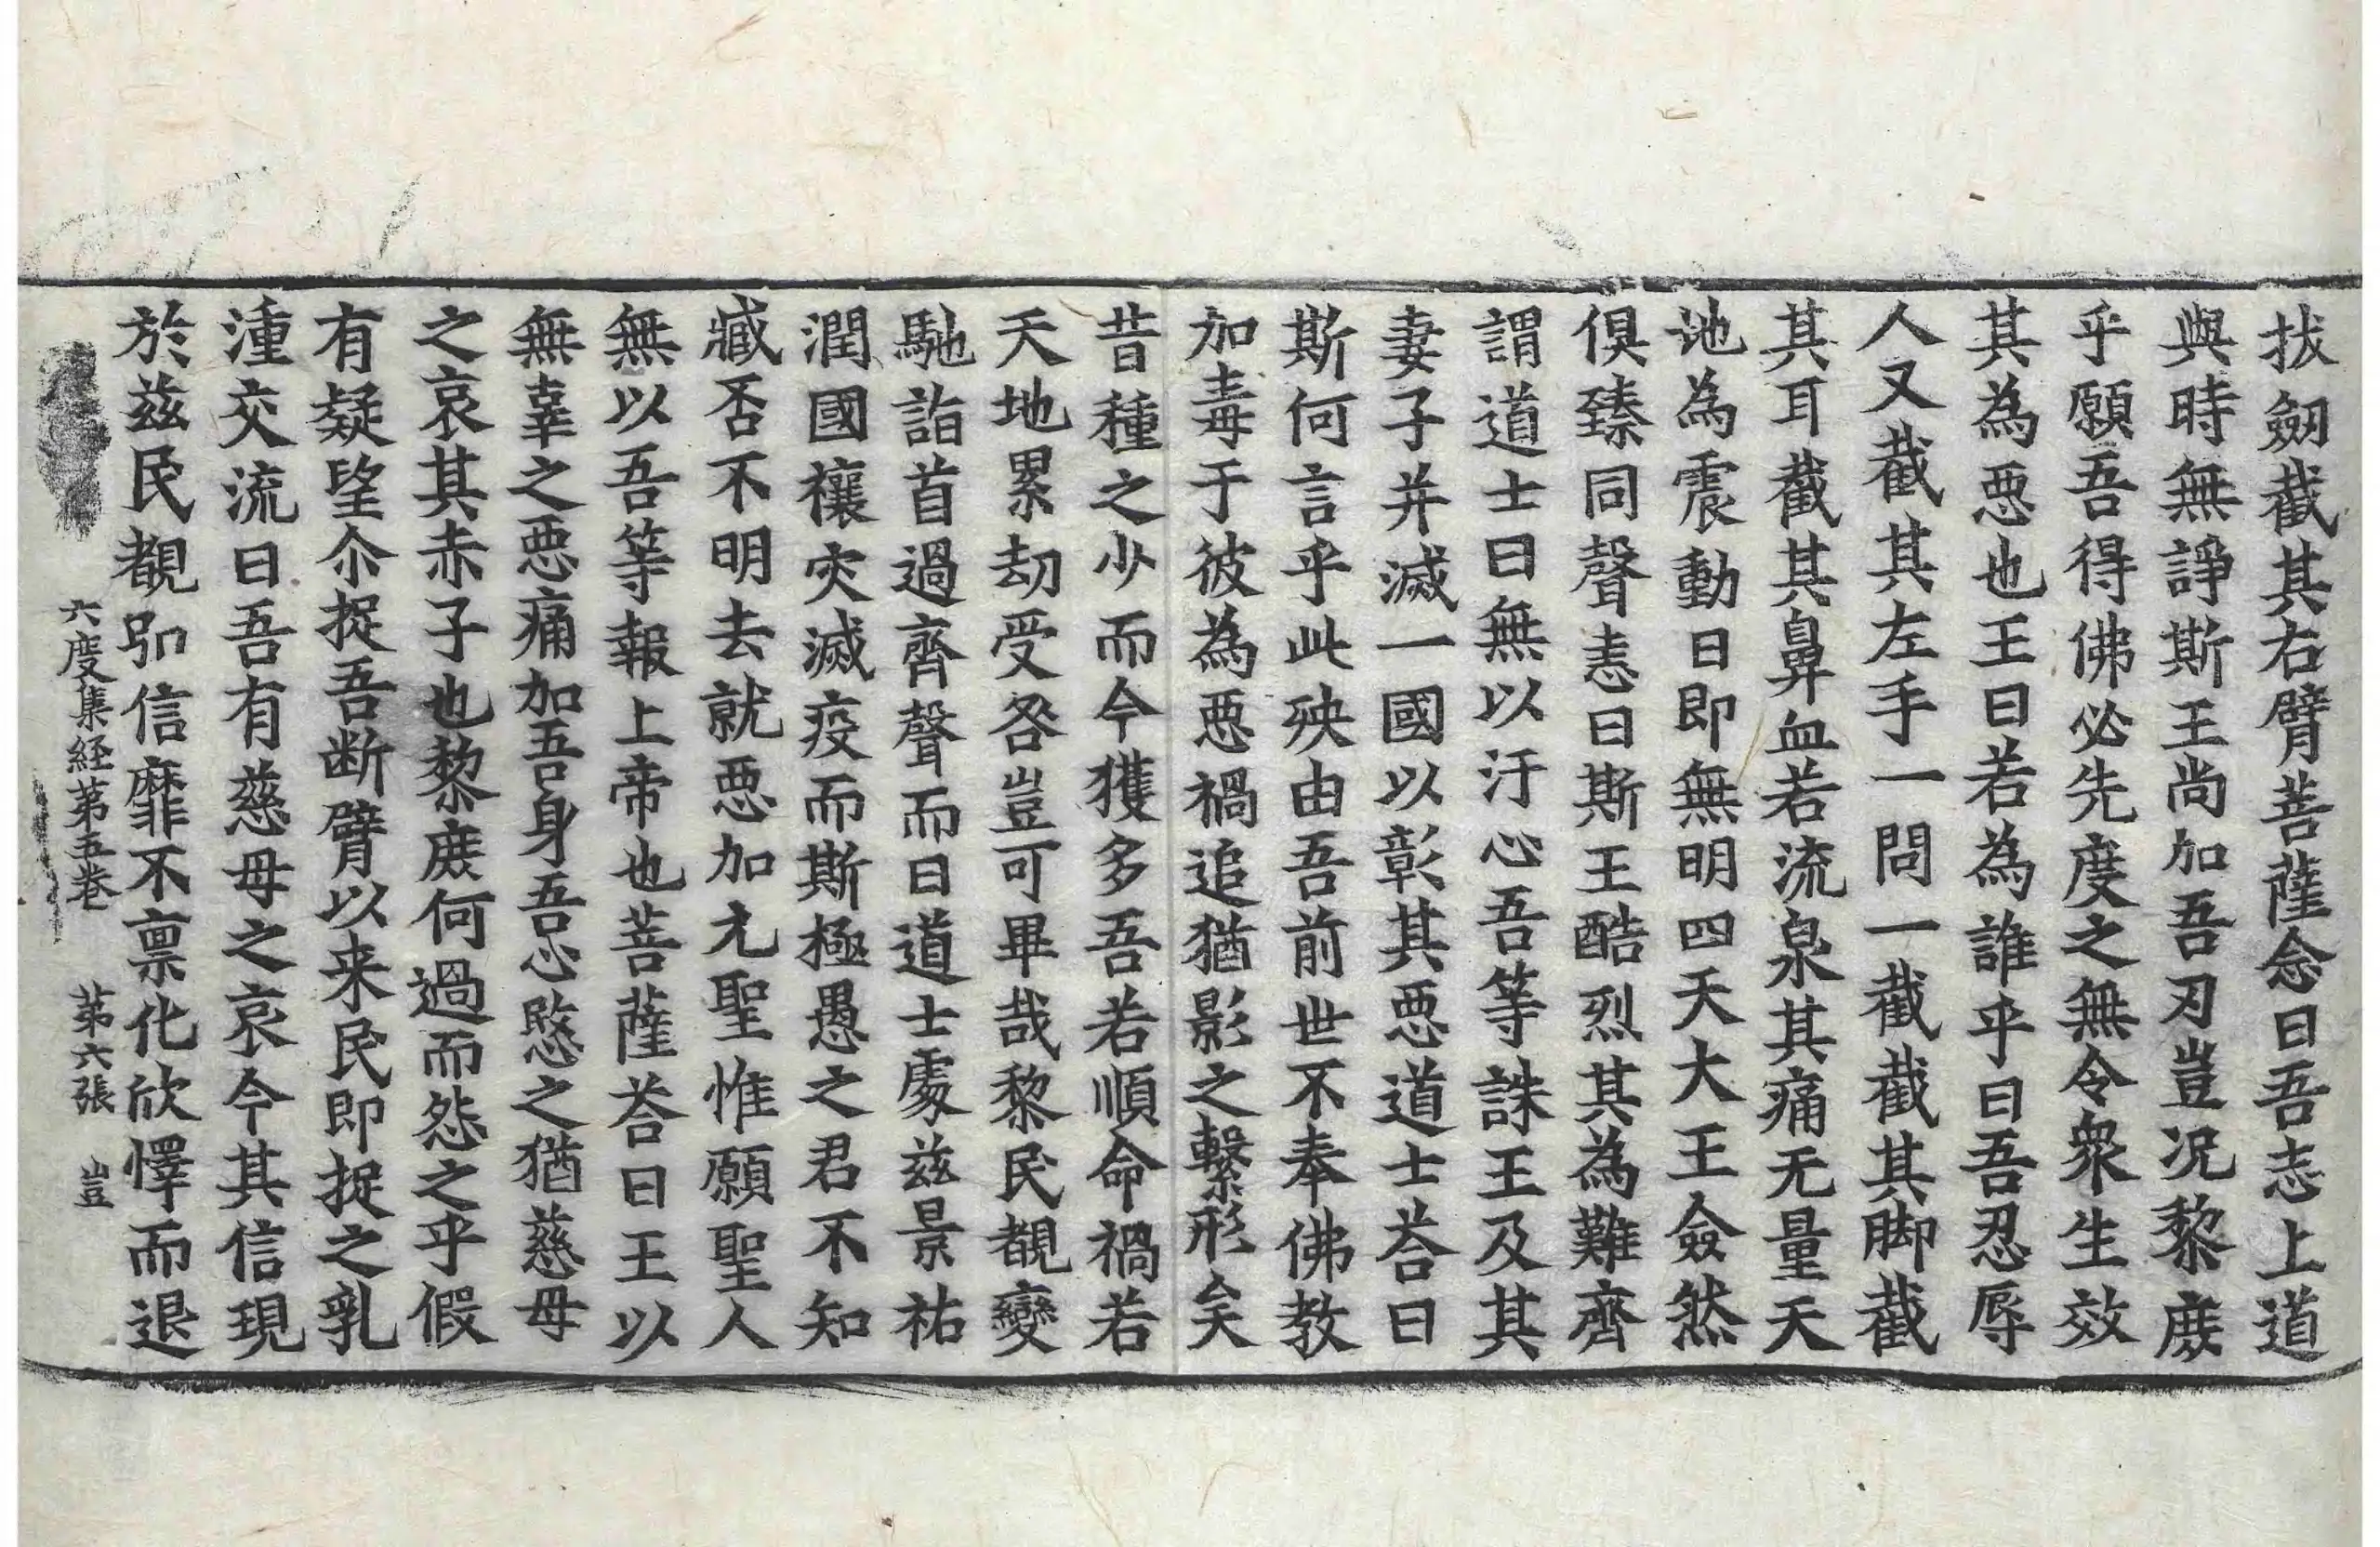 拔劒截其右臂菩薩念曰吾志上道
與時無諍斯王尚加吾刃豈況黎庻
乎願吾得佛必先度之無令衆生效
其為惡也王曰若為誰乎曰吾忍辱
人又截其左手一問一截截其脚截
其耳截其鼻血若流泉其痛无量天
地為震動日即無明四天大王僉然
俱臻同聲恚曰斯王酷烈其為難齊
謂道士曰無以汙心吾等誅王及其
妻子并滅一國以彰其惡道士荅曰
斯何言乎此殃由吾前世不奉佛教
加毒于彼為惡禍追猶影之繫形矣
昔種之少而今獲多吾若順命禍若
天地累劫受咎豈可畢哉黎民覩變
馳詣首過齊聲而曰道士處茲景祐
潤國禳灾滅疫而斯極愚之君不知
臧否不明去就惡加元聖惟願聖人
無以吾等報上帝也菩薩荅曰王以
無辜之惡痛加吾身吾心愍之猶慈母
之哀其赤子也黎庻何過而怨之乎假
有疑望尒捉吾断臂以来民即捉之乳
湩交流曰吾有慈母之哀今其信現
於茲民覩弘信靡不禀化欣懌而退
六度集経第五卷 第六張 豈